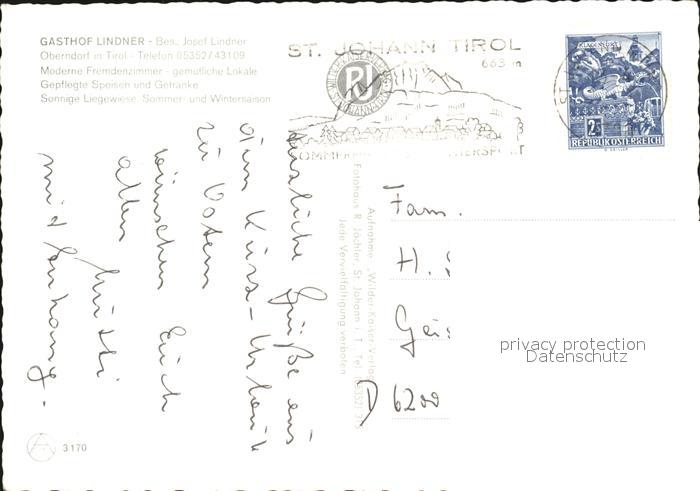 GASTHOF LINDNER - Bes. Josef Lindner
Oberndorf in Tirol - Telefon 05352/43109
Moderne Fremdenzimmer - gemütliche Lokale
Gepflegte Speisen und Getränke
Sonnige Liegewiese. Sommer- und Wintersaison
ST. JOHANN TIROL
663 m
KLAGENFURT
2 S
REPUBLIK ÖSTERREICH
Herzliche Grüße aus
dem Kurz-Urlaub
zu Ostern
wünschen Euch
allen
mit Anhang.
Aufnahme: „Wilder-Kaiser-Verlag"
Fotohaus R. Jöchler, St. Johann i. T. Tel.
Jede Vervielfältigung verboten
Fam.
H.
D 6200
privacy protection
Datenschutz
3170